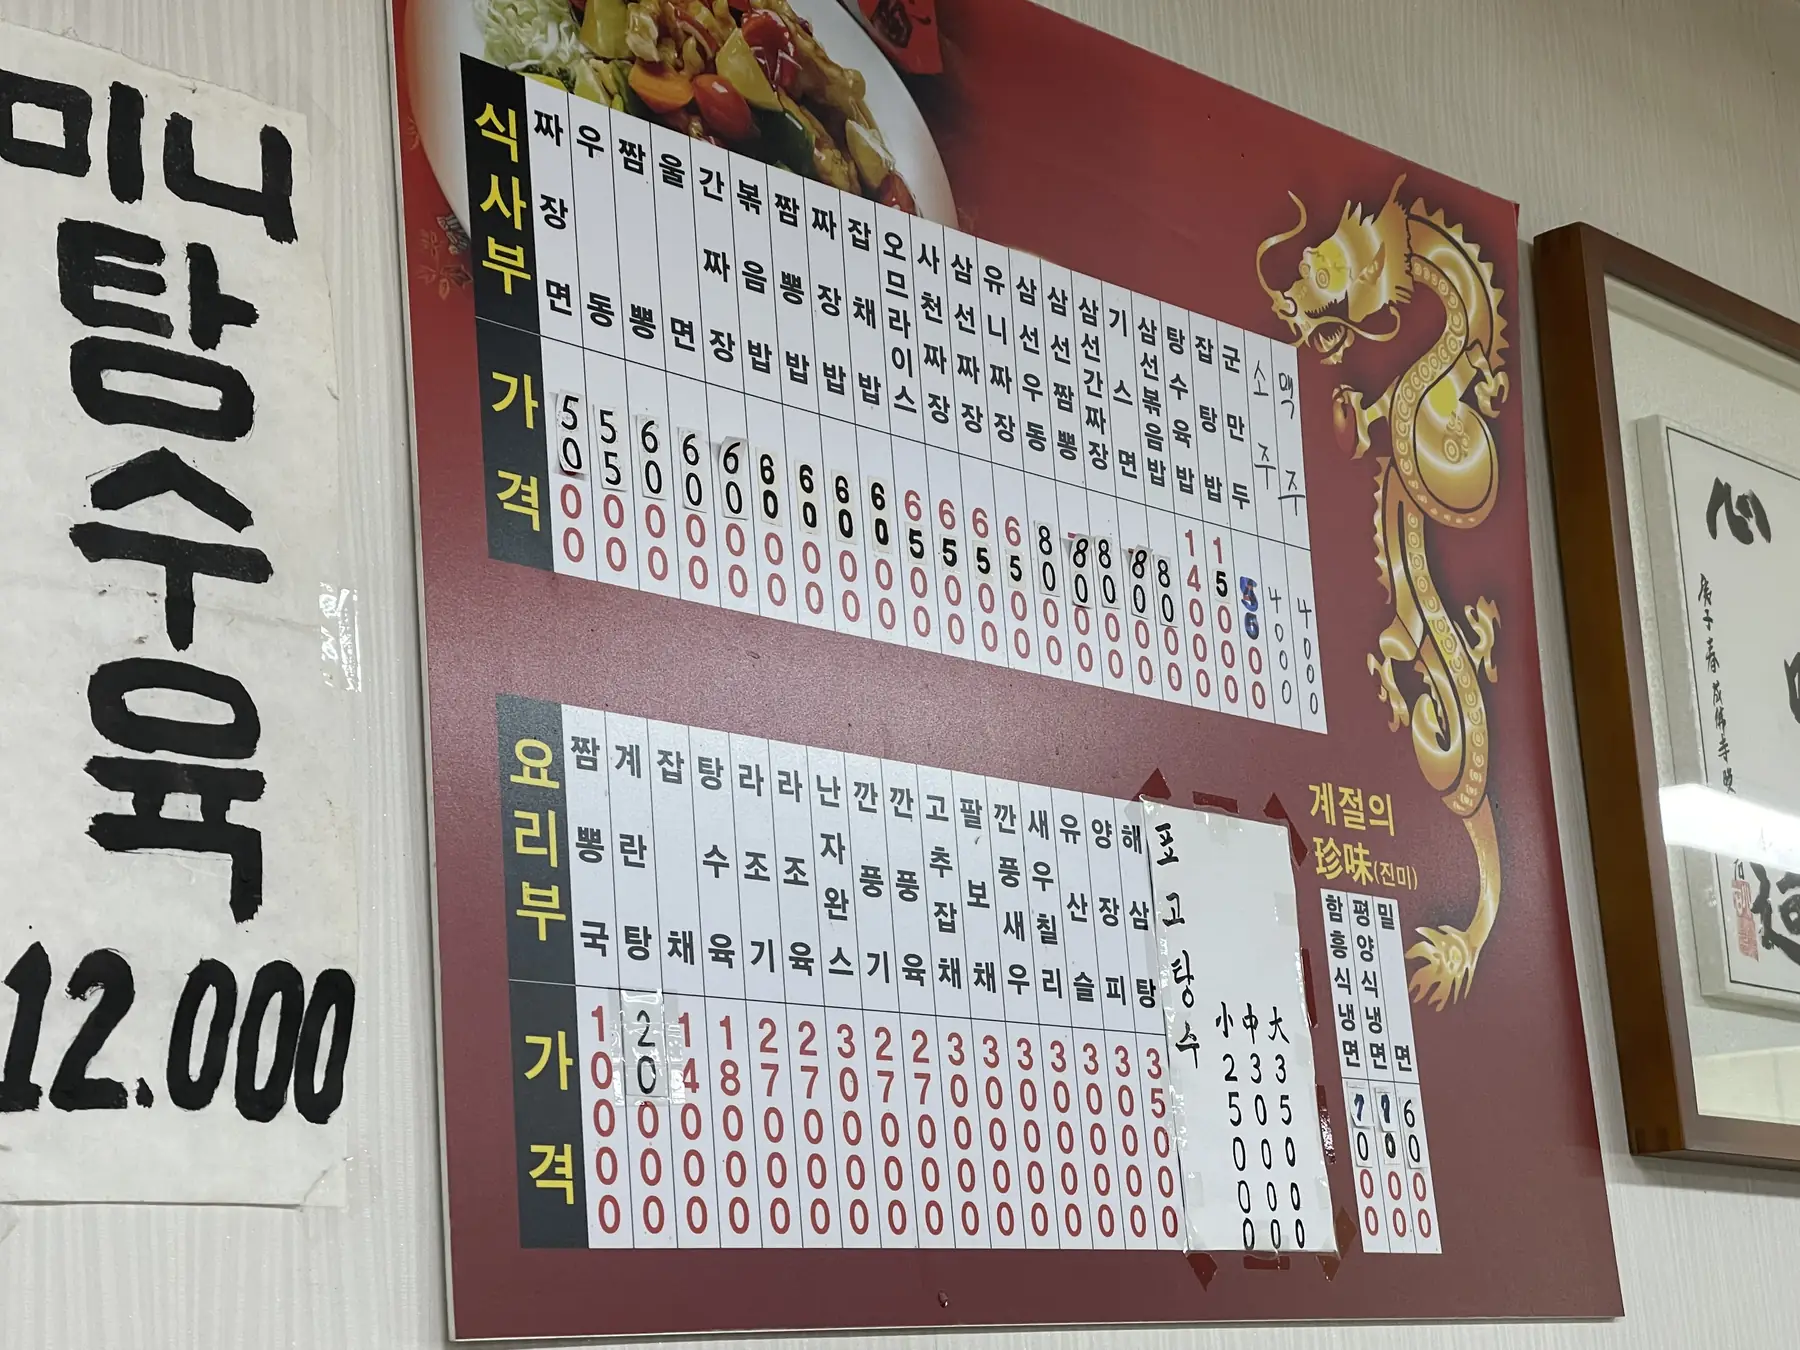 미니
탕수육
12.000
식사부 가격
짜장면 5000
우동 5500
짬뽕 6000
울면 6000
간짜장 6000
볶음밥 6000
짬뽕밥 6000
짜장밥 6000
잡채밥 6000
오므라이스 6500
사천짜장 6500
삼선짜장 6500
유니짜장 6500
삼선우동 8000
삼선짬뽕 8000
삼선간짜장 8000
기스면 8000
삼선볶음밥 8000
탕수육밥 14000
잡탕밥 15000
군만두
소주 4000
맥주 4000
요리부 가격
짬뽕국 10000
계란탕 20000
잡채 14000
탕수육 18000
라조기 27000
라조육 27000
난자완스 30000
깐풍기 27000
깐풍육 27000
고추잡채 30000
팔보채 30000
깐풍새우 30000
새우칠리 30000
유산슬 30000
양장피 30000
해삼탕 35000
표고탕수
小 25000
中 30000
大 35000
계절의
珍味(진미)
함흥식냉면 7000
평양식냉면 7000
밀면 6000
心